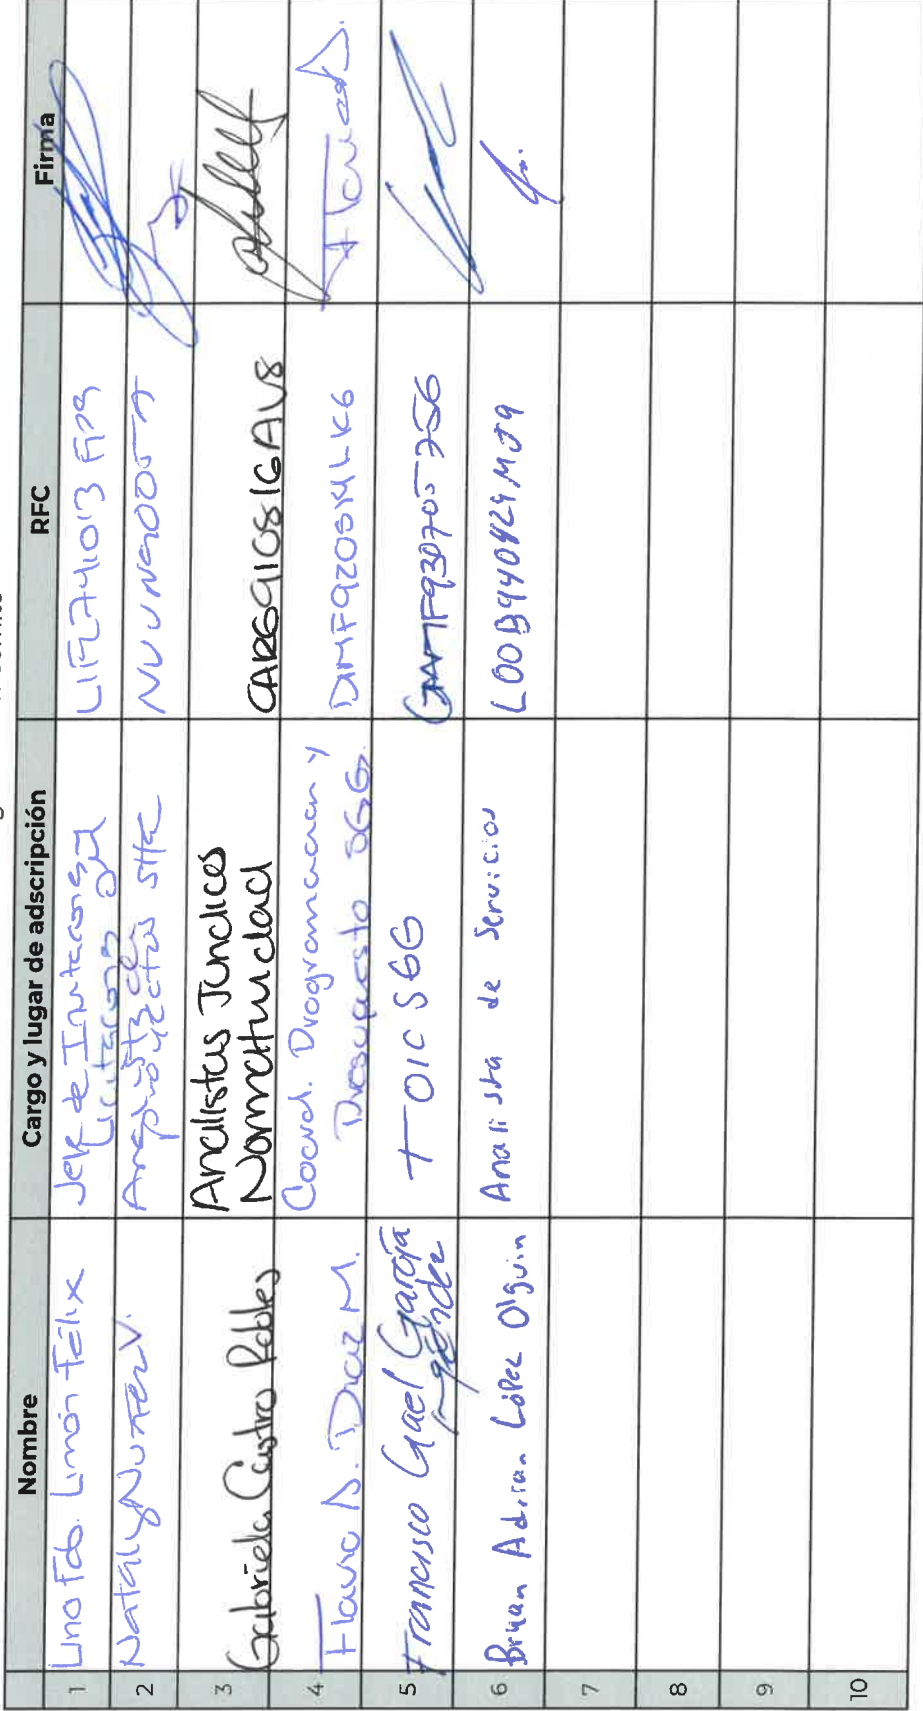 Nombre Cargo y lugar de adscripción RFC Firma
1 Lino Fdo. Limón Félix Jefe de Invitaciones y Licitaciones
2 Nataly Nuñez V. Analista de proyectos
3 Gabriela Castro Robles Analistas Jurídicos Normatividad CARG910816AV8
4 Flavio A. Diaz M. Coord. Programacion y Presupuesto SGG. DIMF920514LK6
5 Francisco Gael García TOIC SGG GAMF930705256
6 Bryan Adrian López Olguin Analista de Servicios LOOB940424MJ9
7
8
9
10